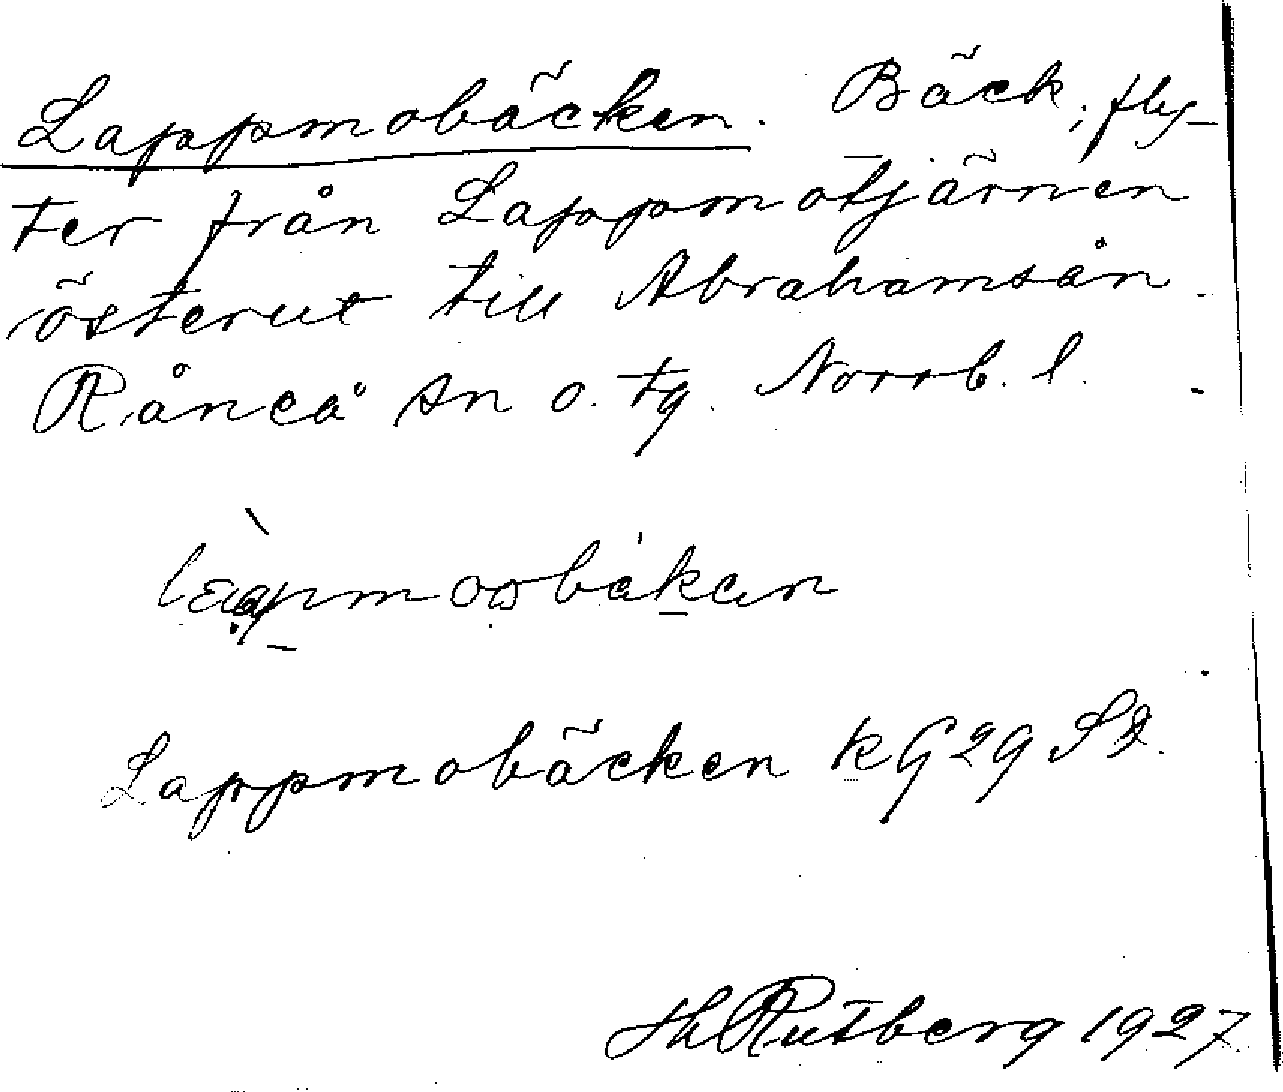 Lappmobäcken. Bäck, fly-
ter från Lappmotjärnen
österut till Abrahamsån.
Råneå sn o. tg. Norrb. l.
Lappmobäcken kG 29
Rutberg 1927